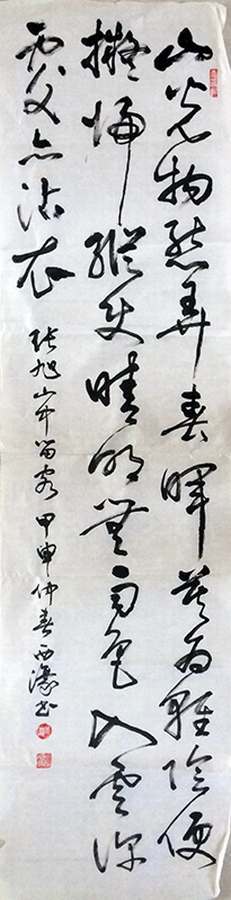 山光物態弄春暉莫为輕陰便
擬歸縱使晴明無雨色入雲深
處亦沾衣
张旭山中留客 甲申仲春西濠书